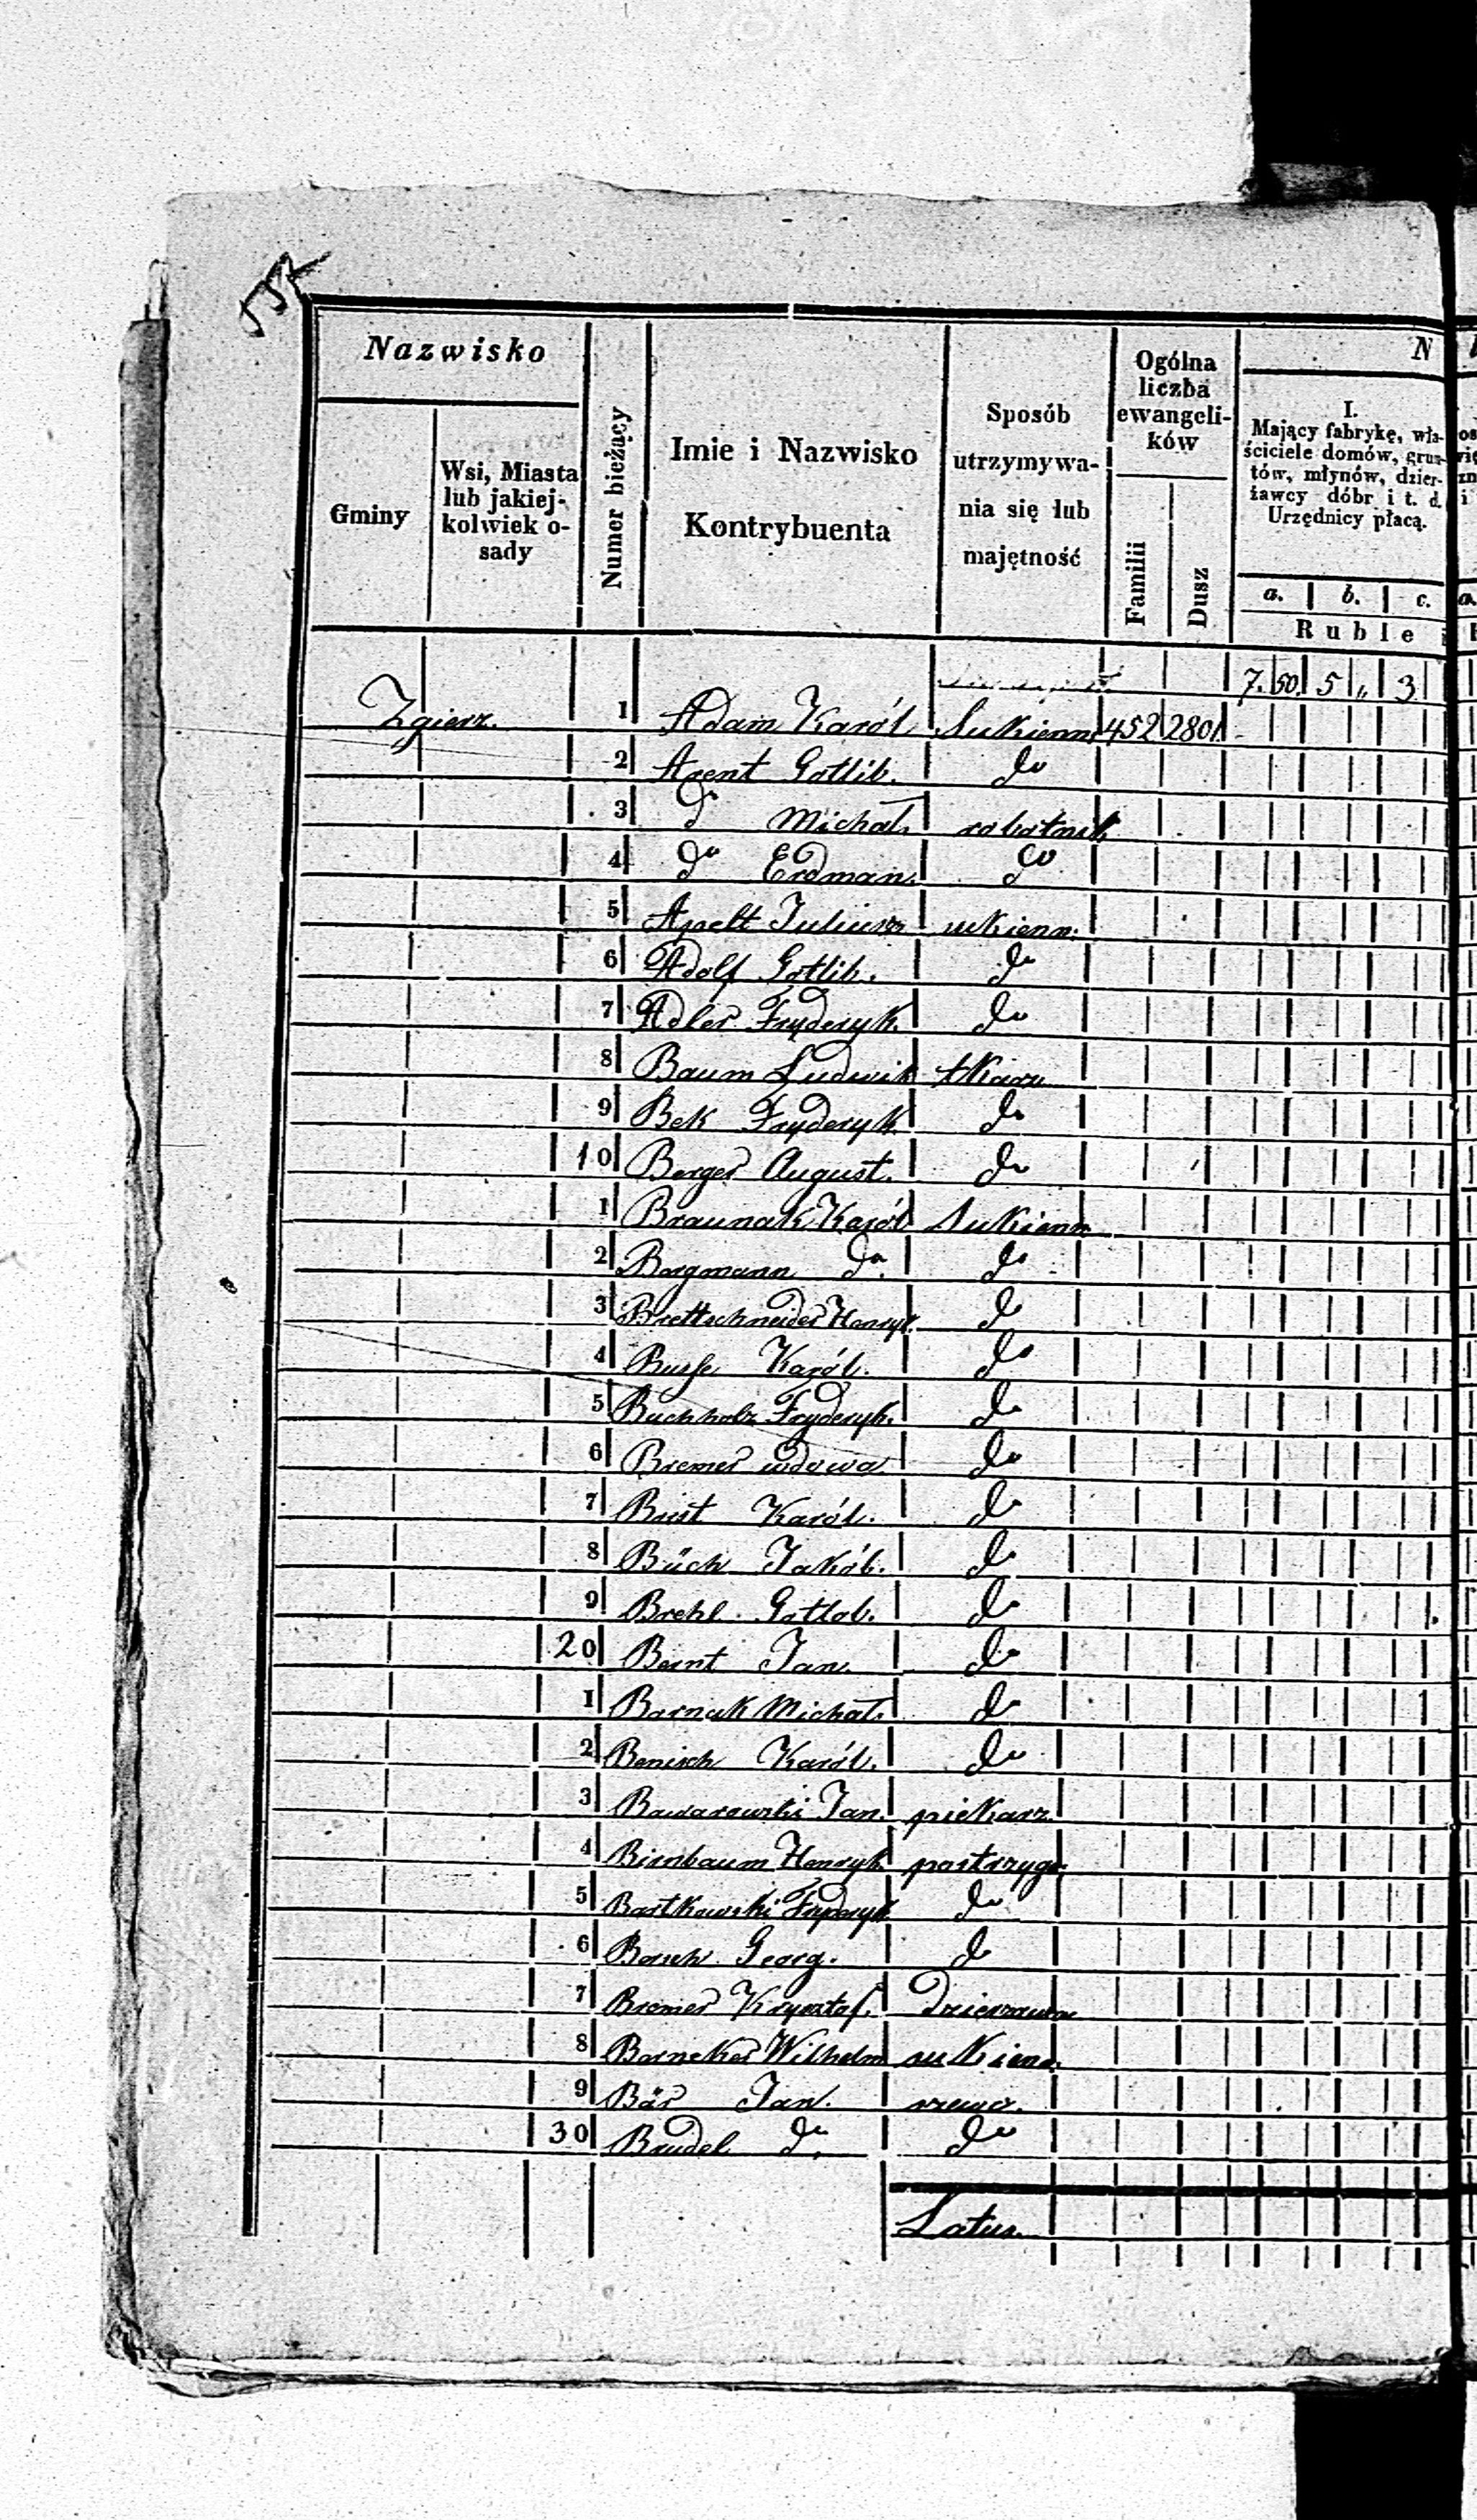 Nazwisko
Gminy
Wsi, Miasta
lub jakiej-
kolwiek o-
sady
Numer bieżący
Imie i Nazwisko
Kontrybuenta
Sposób
utrzymywa-
nia się lub
majętność
Ogólna
liczba
ewangeli-
ków
Familii
Dusz
N
I.
Mający fabrykę, wła-
ściciele domów, grun-
tów, młynów, dzier-
żawcy dóbr i t. d.
Urzędnicy płacą.
a. b. c.
Ruble
7. 50. 5 „ 3
Zgierz. 1 Adam Karól Sukienn. 452 2801
2 Arent Gotlib. do
3 do Michał. robotnik
4 do Erdman. do
5 Apelt Juliusz sukienn.
6 Adolf Gotlib. do
7 Adler Fryderyk. do
8 Baum Ludwik tkacz
9 Bek Fryderyk. do
10 Berger August. do
1 Braunak Karól Sukienn.
2 Bergmann do. do
3 Brettschneider Henryk. do
4 Busse Karól. do
5 Buchholz Fryderyk. do
6 Bremer wdowa do
7 Karól. do
8 Büch Jakób. do
9 Brehl Gotlob. do
20 Jan. do
1 Michał. do
2 Benisch Karól. do
3 Jan. piekarz.
4 Birnbaum Henryk postrzyg.
5 Bartkowski Fryderyk do
6 Georg. do
7 Bremer Krysztof. Dzierzawca
8 Berneker Wilhelm sukienn.
9 Bär Jan. szewc.
30 Brudel do. do
Latus.